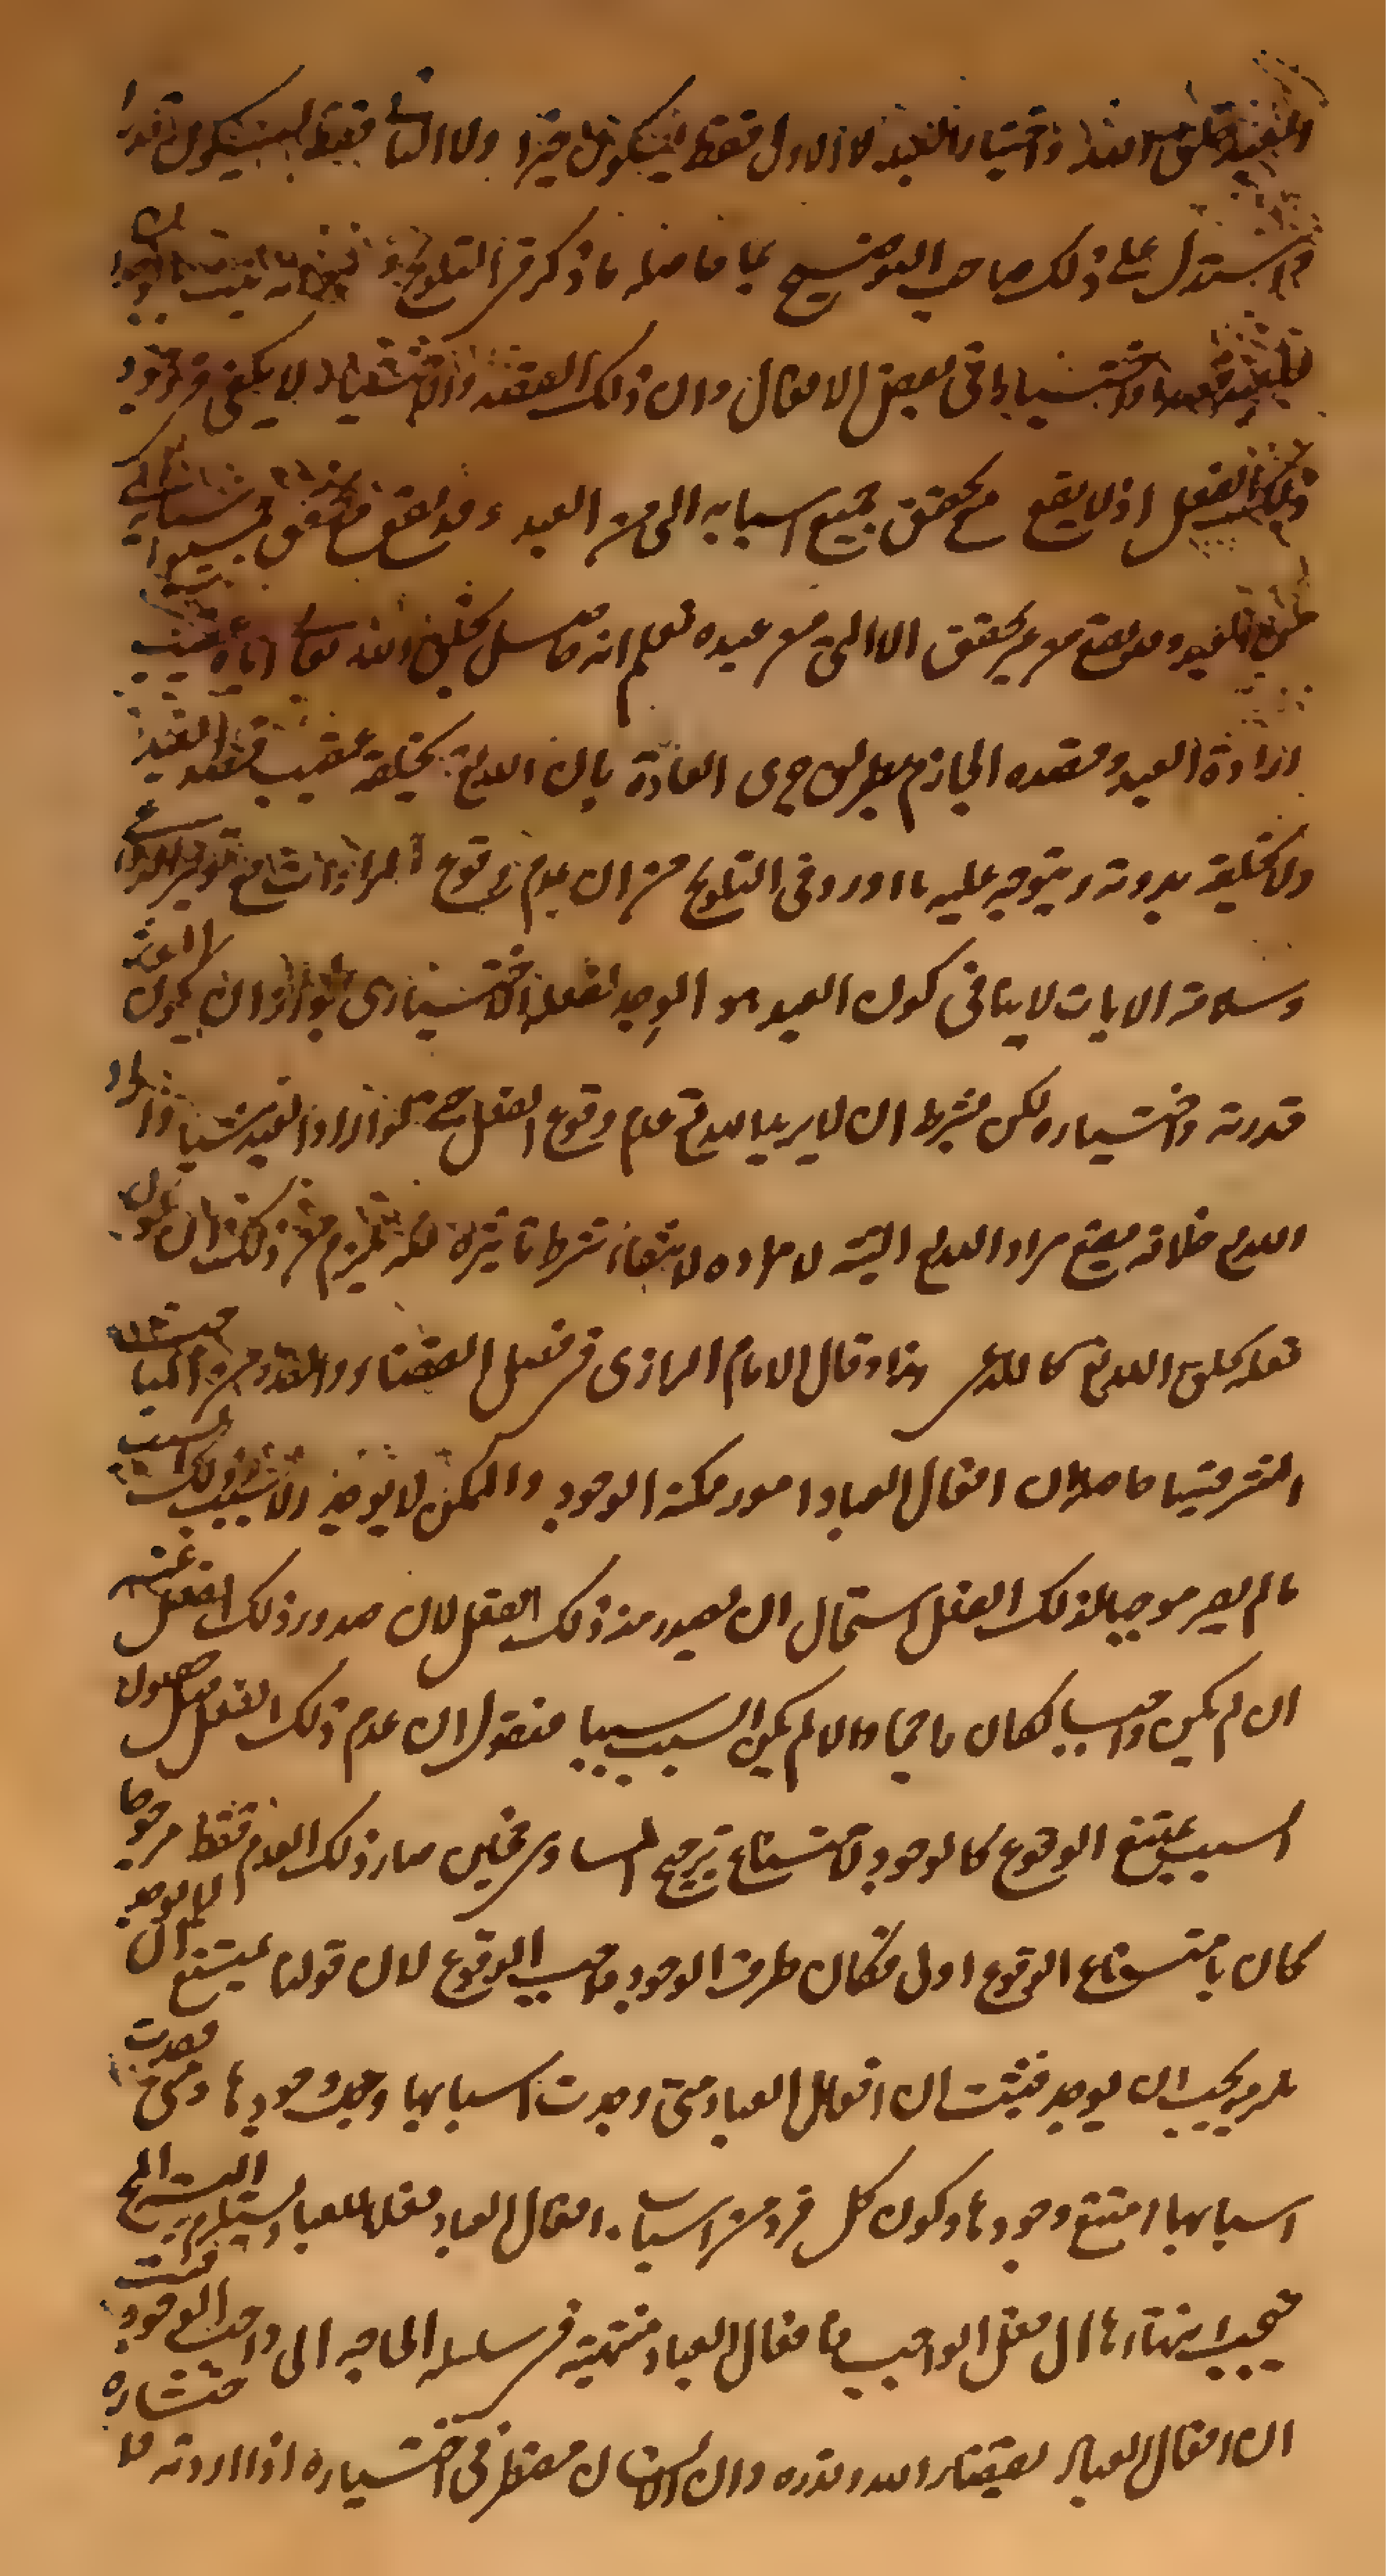 العبد بخلق الله واختيار العبد لا الاول فقط ليكون جبرا ولا الثاني فقط ليكون قدرا
واستدل على ذلك صاحب التوضيح بما حاصله ما ذكر في التلويح
للعبد قصدا واختيارا في بعض الافعال وان ذلك القصد والاختيار لا يكفي في وجود
ذلك الفعل اذ لا يقع مع تحقق جميع اسبابه التي من العبد وقد يقع من غير تحقق
العبد وقد يقع من غير تحقق الاسباب التي من عبده فعلم انه حاصل بخلق الله تعالى اياه عقيب
ارادة العبد وقصده الجازم بطريق جرى العادة بان الله تع يخلقه عقيب قصد العبد
ولا يخلقه بدونه ويتوجه عليه ما اورد في التلويح من ان عدم وقوع المرادات مع توفر الدواعي
وسلامة الالات لا ينافي كون العبد هو الموجد لفعله الاختياري لجواز ان يكون
قدرته واختياره لكن بشرط ان لا يريد الله تع عدم وقوع الفعل حتى لو اراد العبد شيئا واراد
الله تع خلافه يقع مراد الله تع البتة لا مراده لانتفاء شرط تاثيره فلم يلزم من ذلك ان يكون
فعله بخلق الله تع كما للاشعري هذا وقال الامام الرازي في فصل القضاء والقدر من المباحث
المشرقية ما حاصله ان افعال العباد امور ممكنة الوجود والممكن لا يوجد الا بسبب وذلك السبب
ما لم يصر موجبا لذلك الفعل استحال ان يصدر منه ذلك الفعل لان صدور ذلك الفعل عنه
ان لم يكن واجبا لكان ناجحا والا لم يكن السبب سببا فنقول ان عدم ذلك الفعل قبل حصول
السبب يمتنع الوقوع كالوجود لامتناع ترجيح المساوي فحين صار ذلك العدم فقط مرجوحا
كان بامتناع الوقوع اولى فكان طرف الوجود واجب الوقوع لان قولنا يمتنع ان لا يوجد
يلزمه يجب ان يوجد فثبت ان افعال العباد متى وجدت اسبابها وجب وجودها ومتى فقدت
اسبابها امتنع وجودها وكون كل فرد من اسباب افعال العباد فعلا للعباد يستلزم التسلسل المح
فيجب انتهاءها الى فعل الواجب فافعال العباد منتهية في سلسلة الحاجة الى واجب الوجود فثبت
ان افعال العباد بقضاء الله وقدره وان الانسان مضطر في اختياره اذا اردته